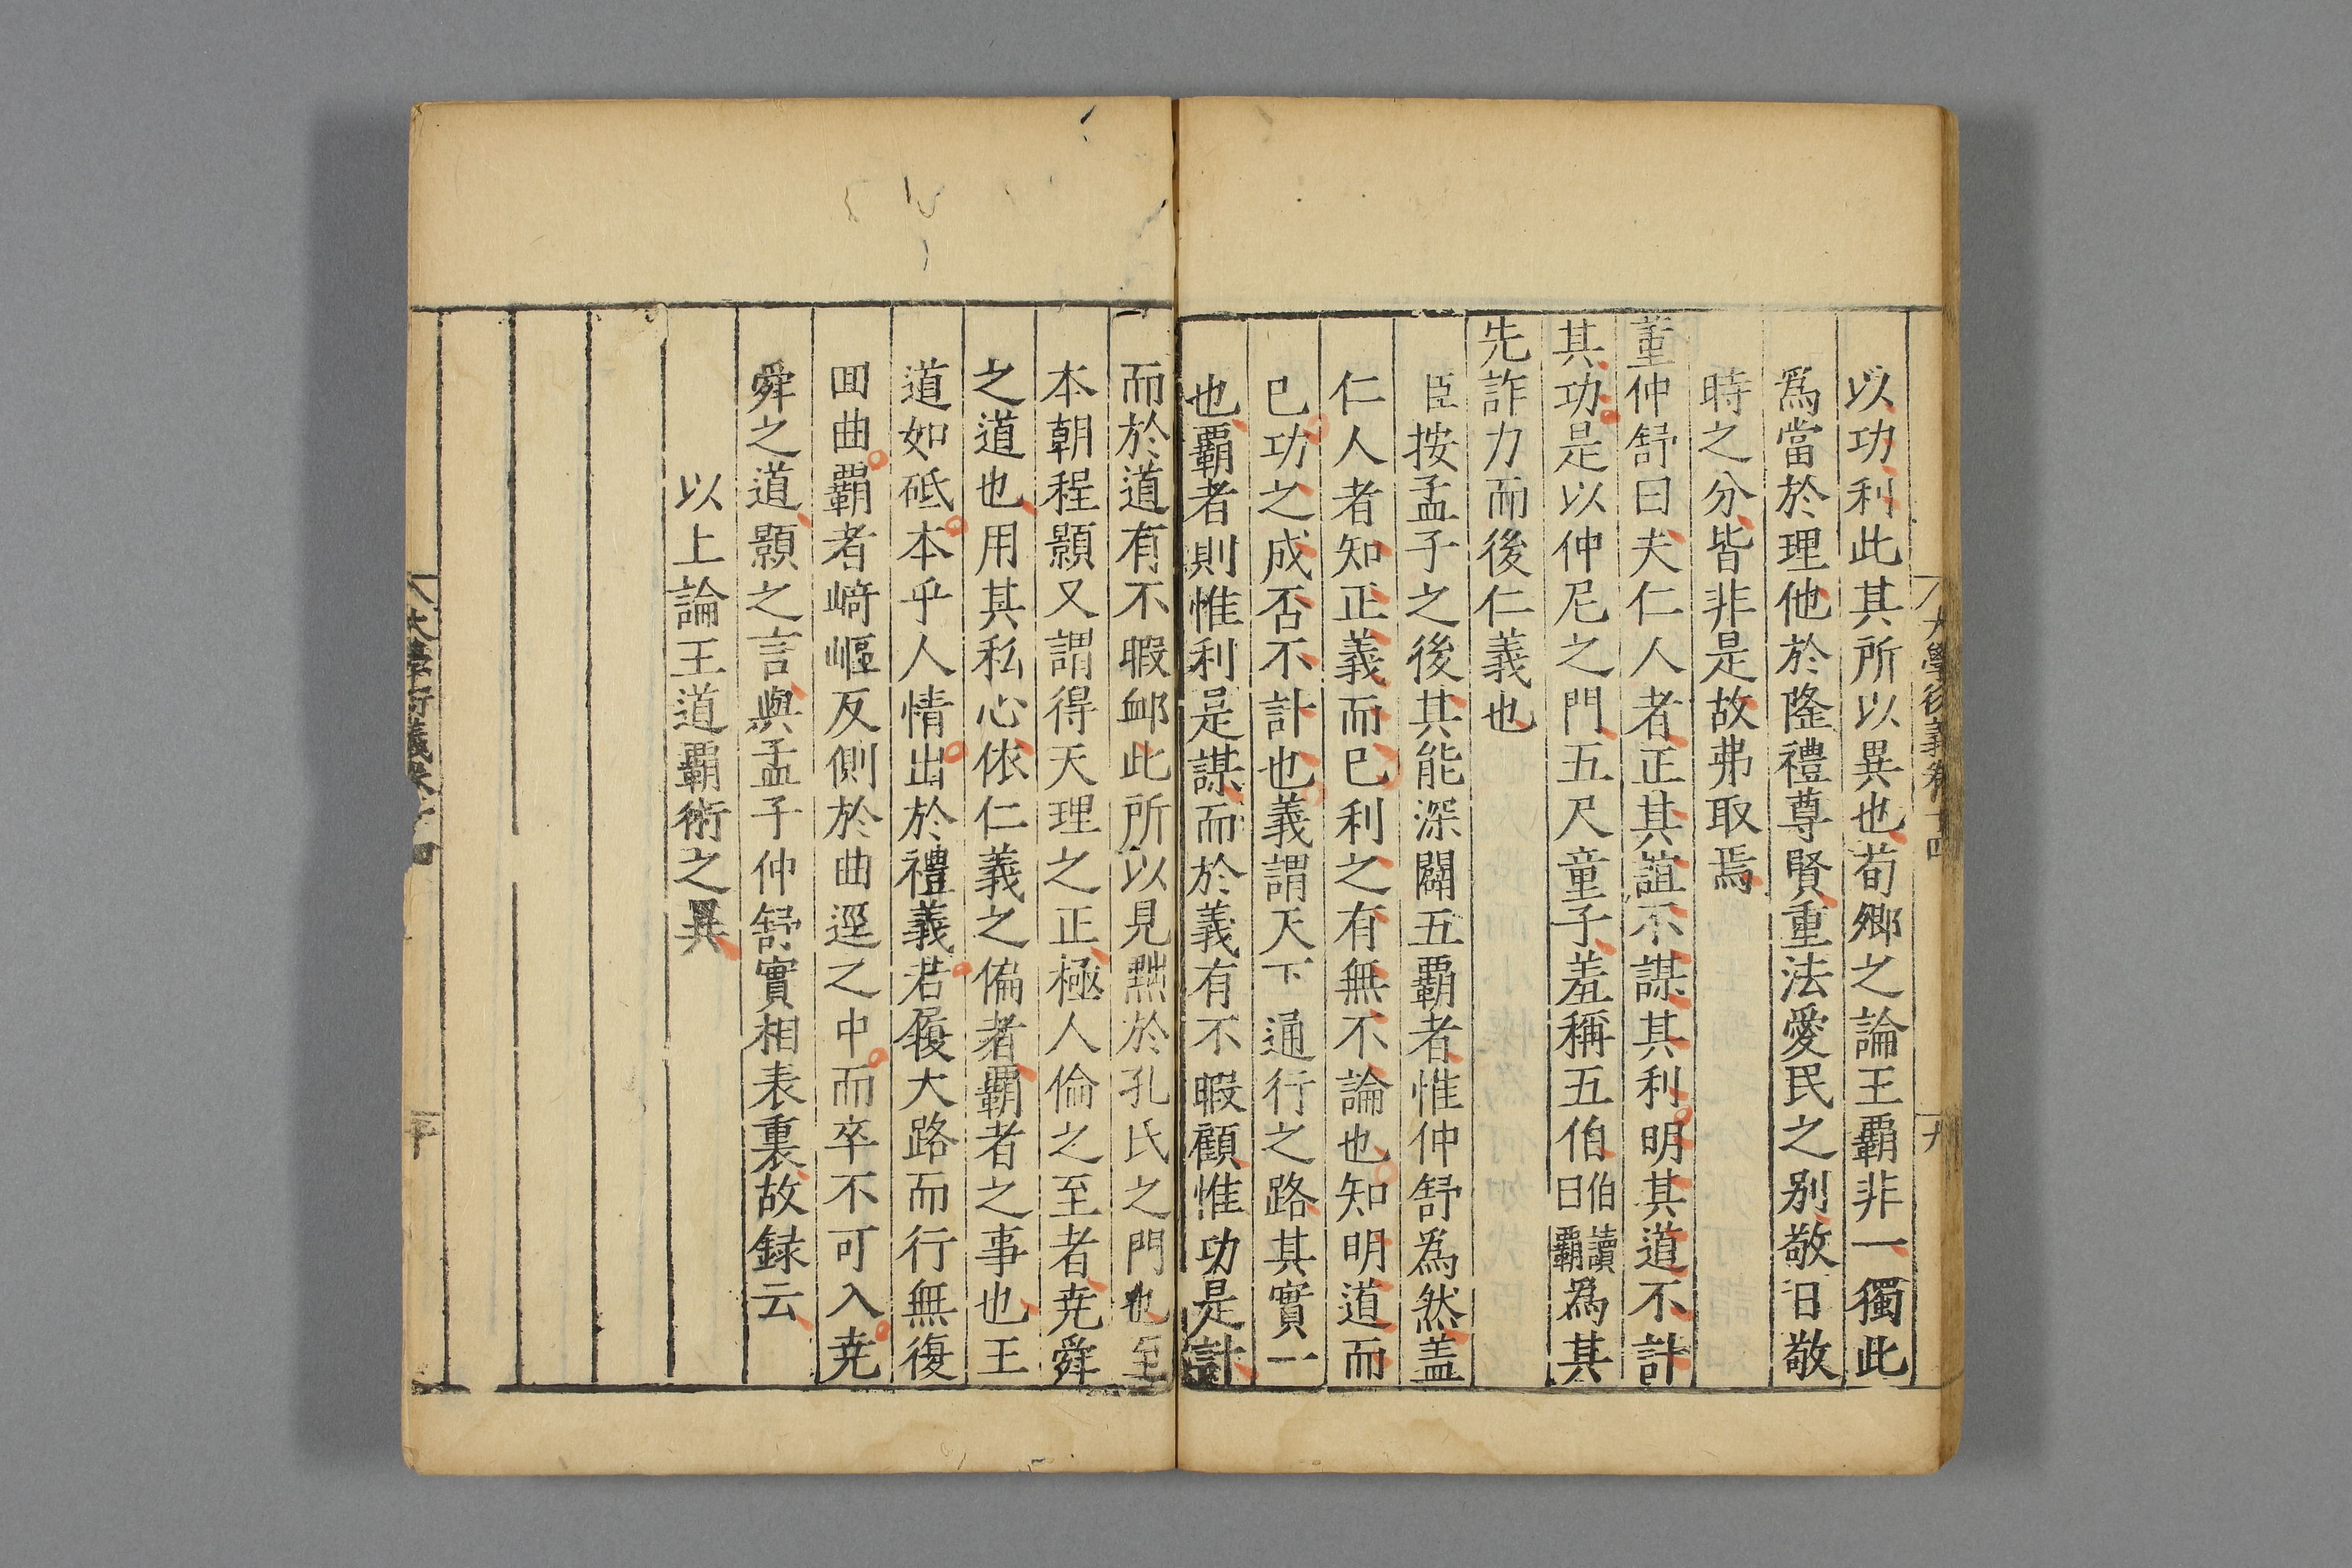 大學衍義卷十四
九
以功利此其所以異也荀卿之論王覇非一獨此
爲當於理他於隆禮尊賢重法愛民之别敬日敬
時之分皆非是故弗取焉
董仲舒曰夫仁人者正其誼不謀其利明其道不計
其功是以仲尼之門五尺童子羞稱五伯伯讀曰覇爲其
先詐力而後仁義也
臣按孟子之後其能深闢五覇者惟仲舒為然盖
仁人者知正義而已利之有無不論也知明道而
已功之成否不計也義謂天下通行之路其實一
也覇者則惟利是謀而於義有不暇顧惟功是計
而於道有不暇䘏此所以見黜於孔氏之門也至
本朝程顥又謂得天理之正極人倫之至者尭舜
之道也用其私心依仁義之偏者覇者之事也王
道如砥本乎人情出於禮義若履大路而行無復
囬曲覇者﨑嶇反側於曲逕之中而卒不可入尭
舜之道顥之言與孟子仲舒實相表裏故録云
以上論王道覇術之異
大學衍義卷十四
二十